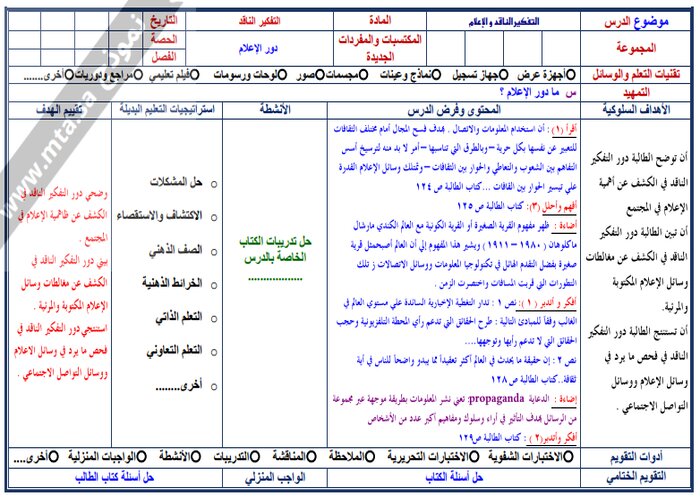 موضوع الدرس
التفكير الناقد والإعلام
المادة
التفكير الناقد
التاريخ
المجموعة
المكتسبات والمفردات الجديدة
دور الإعلام
الحصة
الفصل
تقنيات التعلم والوسائل
أجهزة عرض جهاز تسجيل نماذج وعينات مجسمات صور لوحات ورسومات فيلم تعليمي مراجع ودوريات أخرى........
التمهيد
س ما دور الإعلام ؟
الأهداف السلوكية
المحتوى وفرض الدرس
الأنشطة
استراتيجيات التعليم البديلة
تقييم الهدف
أن توضح الطالبة دور التفكير
الناقد في الكشف عن أهمية
الإعلام في المجتمع
أن تبين الطالبة دور التفكير
الناقد في الكشف عن مغالطات
وسائل الإعلام المكتوبة
والمرئية.
أن تستنتج الطالبة دور التفكير
الناقد في فحص ما يرد في
وسائل الإعلام ووسائل
التواصل الاجتماعي .
أقرأ (١) : أن استخدام المعلومات والاتصال . بهدف فسح المجال أمام مختلف الثقافات
للتعبير عن نفسها بكل حرية – وبالطرق التي تناسبها – أمر لا بد منه لترسيخ أسس
التفاهم بين الشعوب والتعاطي والحوار بين الثقافات – وتمتلك وسائل الإعلام القدرة
على تيسير الحوار بين القافات ...كتاب الطالبة ص ١٢٤
أفهم وأحلل (٣): كتاب الطالبة ص ١٢٥
أضاءة : ظهر مفهوم القرية الصغيرة أو القرية الكونية مع العالم الكندي مارشال
ماكلوهان ( ١٩٨٠ – ١٩١١ ) ويشير هذا المفهوم إلي أن العالم أصبحمثل قرية
صغيرة بفضل التقدم الهائل في تكنولوجيا المعلومات ووسائل الاتصالات ز تلك
التطورات التي قربت المسافات واختصرت الزمن .
أفكر و أتدبر ( ١ ): نص ١ : تدار التغطية الإخبارية السائدة علي مستوي العالم في
الغالب وفقاً للمبادئ التالية : طرح الحقائق التي تدعم رأي المحطة التلفزيونية وحجب
الحقائق التي لا تدعم رأيها وتوجهها....
نص ٢ : إن حقيقة ما يحدث في العالم أكثر تعقيداً مما يبدو واضحاً للناس في أية
ثقافة..كتاب الطالبة ص ١٢٨
إضاءة: الدعاية propaganda: تعني نشر المعلومات بطريقة موجهة عبر مجموعة
من الرسائل بهدف التأثير في أراء وسلوك ومفاهيم أكبر عدد من الأشخاص
أفكر وأتدبر(٢ ) : كتاب الطالبة ص١٢٩
حل تدريبات الكتاب
الخاصة بالدرس
................
حل المشكلات
الاكتشاف والاستقصاء
الصف الذهني
الخرائط الذهنية
التعلم الذاتي
التعلم التعاوني
أخرى.........
وضحي دور التفكير الناقد في
الكشف عن ظاهرة الإعلام في
المجتمع .
بيني دور التفكير الناقد في
الكشف عن مغالطات وسائل
الإعلام المكتوبة والمرئية .
استنتجي دور التفكير الناقد في
فحص ما يرد في وسائل الاعلام
ووسائل التواصل الاجتماعي .
أدوات التقويم
الاختبارات الشفوية الاختبارات التحريرية الملاحظة المناقشة التدريبات الأنشطة الواجبات المنزلية أخرى....
التقويم الختامي
حل أسئلة الكتاب
الواجب المنزلي
حل أسئلة كتاب الطالب
نموذج www.mta3sa.com